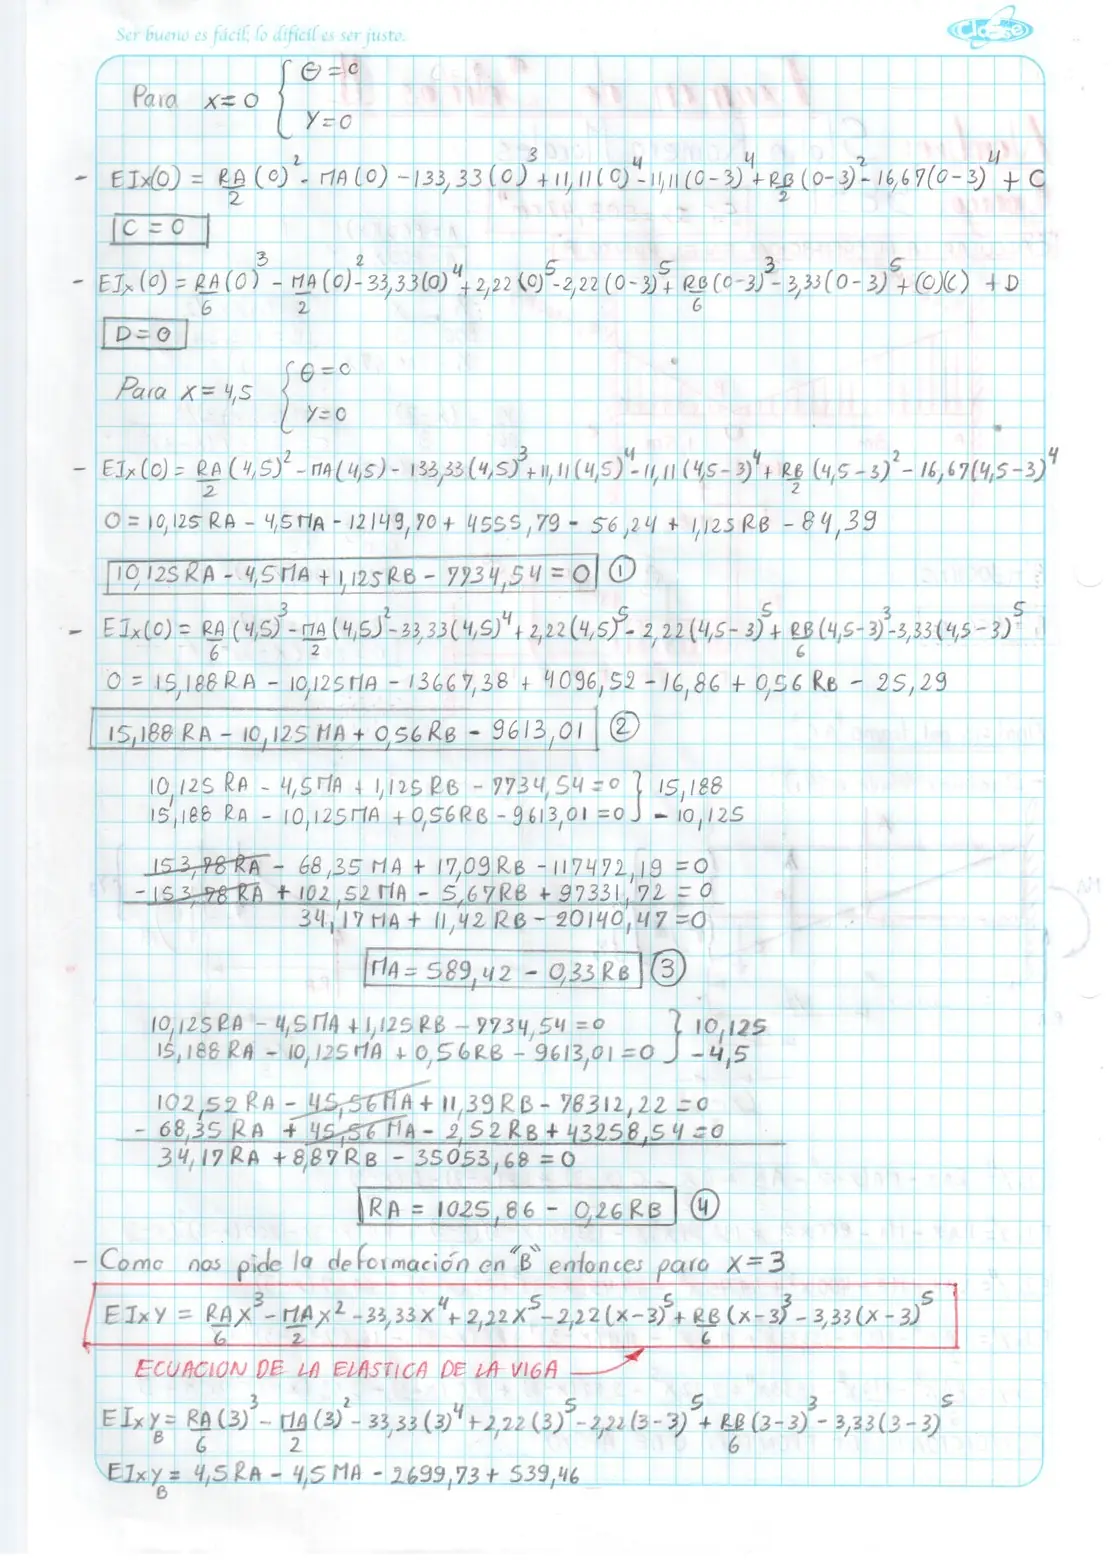 Ser bueno es fácil; lo difícil es ser justo.
Clase
Para x=0 { θ=0
Y=0
- EIx(0) = RA/2 (0)² - MA(0) - 133,33(0)³ + 11,11(0)⁴ - 11,11(0-3)⁴ + RB/2 (0-3)² - 16,67(0-3)⁴ + C
C = 0
- EIx(0) = RA/6 (0)³ - MA/2 (0)² - 33,33(0)⁴ + 2,22(0)⁵ - 2,22(0-3)⁵ + RB/6 (0-3)³ - 3,33(0-3)⁵ + (0)(C) + D
D = 0
Para x = 4,5 { θ=0
Y=0
- EIx(0) = RA/2 (4,5)² - MA(4,5) - 133,33(4,5)³ + 11,11(4,5)⁴ - 11,11(4,5-3)⁴ + RB/2 (4,5-3)² - 16,67(4,5-3)⁴
0 = 10,125 RA - 4,5 MA - 12149,70 + 4555,79 - 56,24 + 1,125 RB - 84,39
10,125 RA - 4,5 MA + 1,125 RB - 7734,54 = 0 ①
- EIx(0) = RA/6 (4,5)³ - MA/2 (4,5)² - 33,33(4,5)⁴ + 2,22(4,5)⁵ - 2,22(4,5-3)⁵ + RB/6 (4,5-3)³ - 3,33(4,5-3)⁵
0 = 15,188 RA - 10,125 MA - 13667,38 + 4096,52 - 16,86 + 0,56 RB - 25,29
15,188 RA - 10,125 MA + 0,56 RB - 9613,01 ②
10,125 RA - 4,5 MA + 1,125 RB - 7734,54 = 0 } 15,188
15,188 RA - 10,125 MA + 0,56 RB - 9613,01 = 0 } - 10,125
153,78 RA - 68,35 MA + 17,09 RB - 117472,19 = 0
-153,78 RA + 102,52 MA - 5,67 RB + 97331,72 = 0
34,17 MA + 11,42 RB - 20140,47 = 0
MA = 589,42 - 0,33 RB ③
10,125 RA - 4,5 MA + 1,125 RB - 7734,54 = 0 } 10,125
15,188 RA - 10,125 MA + 0,56 RB - 9613,01 = 0 } - 4,5
102,52 RA - 45,56 MA + 11,39 RB - 78312,22 = 0
- 68,35 RA + 45,56 MA - 2,52 RB + 43258,54 = 0
34,17 RA + 8,87 RB - 35053,68 = 0
RA = 1025,86 - 0,26 RB ④
- Como nos pide la deformación en "B" entonces para x=3
EIxY = RA/6 x³ - MA/2 x² - 33,33x⁴ + 2,22x⁵ - 2,22(x-3)⁵ + RB/6 (x-3)³ - 3,33(x-3)⁵
ECUACION DE LA ELASTICA DE LA VIGA
EIxYB = RA/6 (3)³ - MA/2 (3)² - 33,33(3)⁴ + 2,22(3)⁵ - 2,22(3-3)⁵ + RB/6 (3-3)³ - 3,33(3-3)⁵
EIxYB = 4,5 RA - 4,5 MA - 2699,73 + 539,46